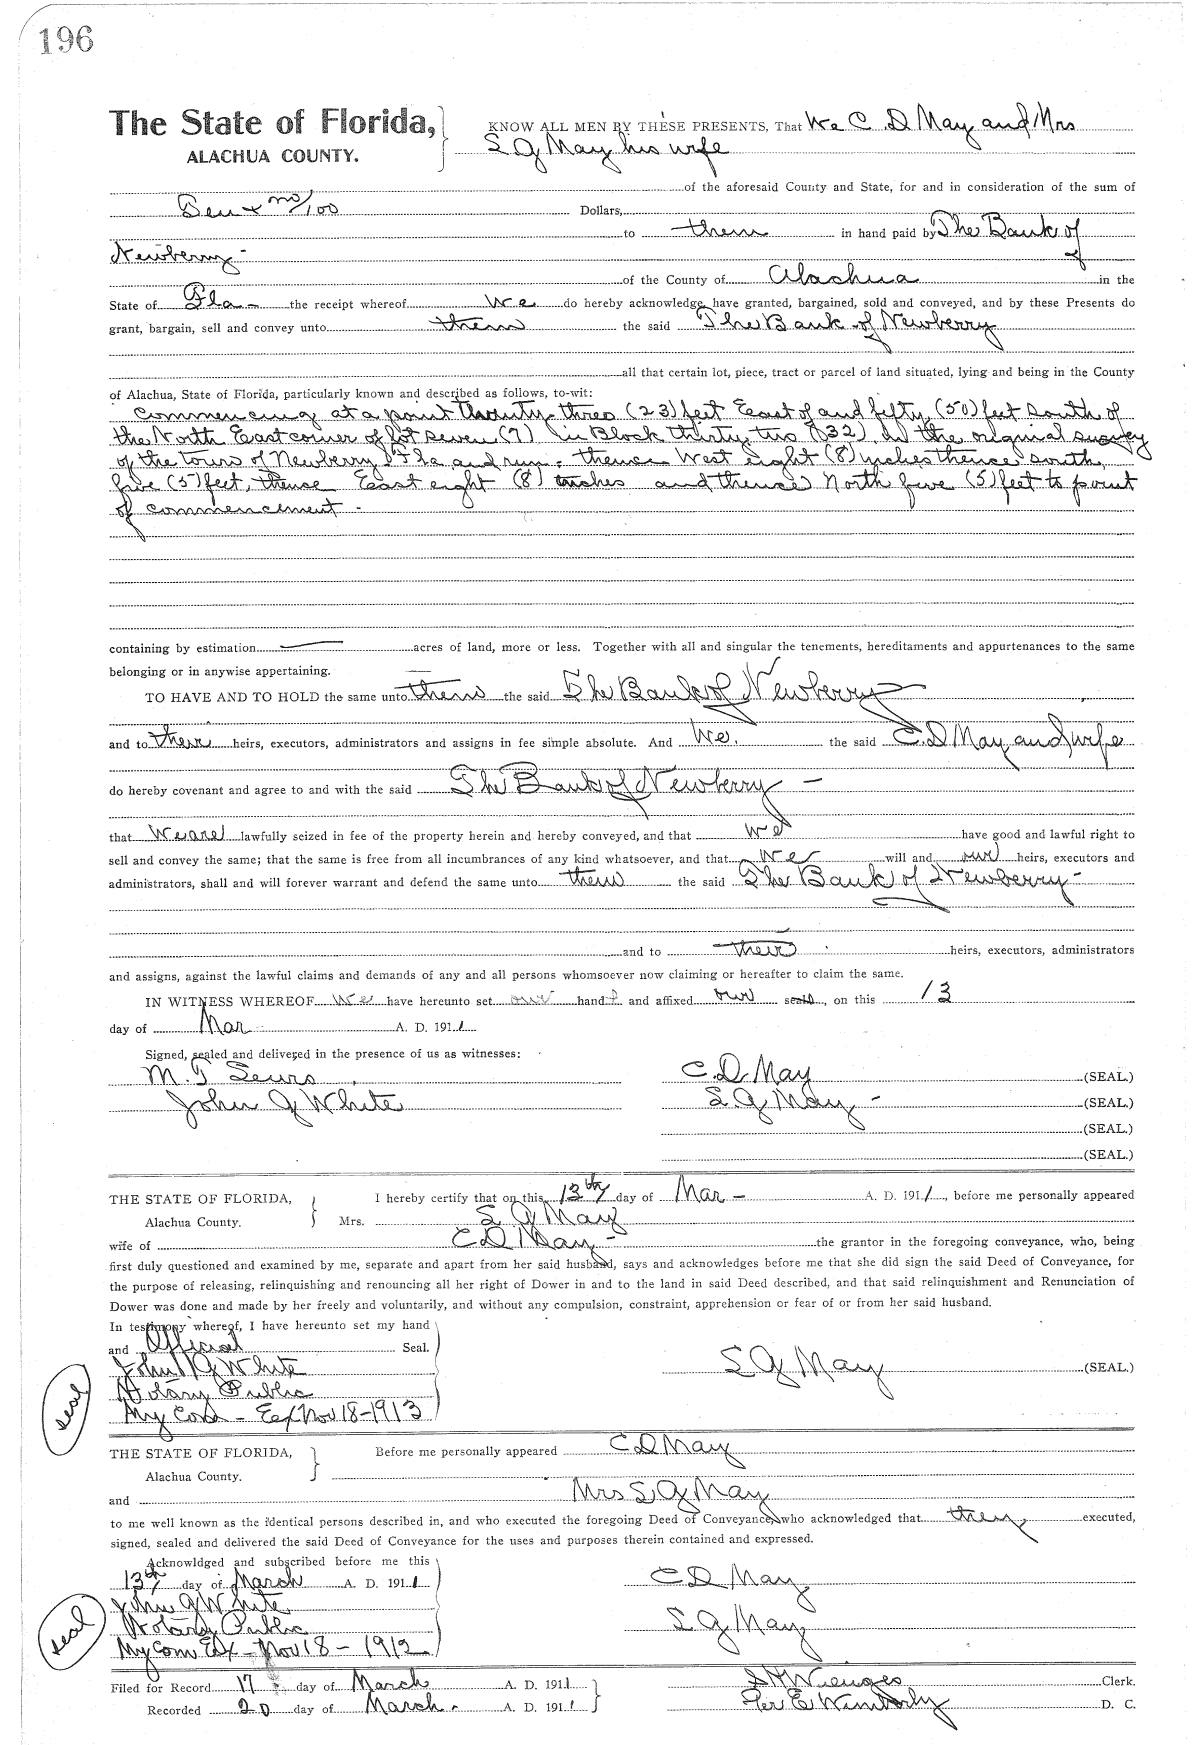 196
The State of Florida, KNOW ALL MEN BY THESE PRESENTS, That We C. D. May and Mrs
ALACHUA COUNTY. S G May his wife
of the aforesaid County and State, for and in consideration of the sum of
Ten & no/100 Dollars,
to them in hand paid by The Bank of
Newberry -
of the County of Alachua in the
State of Fla - the receipt whereof we do hereby acknowledge, have granted, bargained, sold and conveyed, and by these Presents do
grant, bargain, sell and convey unto them the said The Bank of Newberry
all that certain lot, piece, tract or parcel of land situated, lying and being in the County
of Alachua, State of Florida, particularly known and described as follows, to-wit:
Commencing at a point twenty three (23) feet East of and fifty (50) feet south of
the North East corner of lot seven (7) in Block thirty two (32) in the original survey
of the town of Newberry Fla and run - thence West eight (8) inches thence south,
five (5) feet, thence East eight (8) inches and thence North five (5) feet to point
of commencement -
containing by estimation acres of land, more or less. Together with all and singular the tenements, hereditaments and appurtenances to the same
belonging or in anywise appertaining.
TO HAVE AND TO HOLD the same unto them the said The Bank of Newberry
and to their heirs, executors, administrators and assigns in fee simple absolute. And We. the said C. D May and wife
do hereby covenant and agree to and with the said The Bank of Newberry -
that We are lawfully seized in fee of the property herein and hereby conveyed, and that we have good and lawful right to
sell and convey the same; that the same is free from all incumbrances of any kind whatsoever, and that We will and our heirs, executors and
administrators, shall and will forever warrant and defend the same unto them the said The Bank of Newberry -
and to their heirs, executors, administrators
and assigns, against the lawful claims and demands of any and all persons whomsoever now claiming or hereafter to claim the same.
IN WITNESS WHEREOF We have hereunto set our hands and affixed our seals, on this 13
day of Mar A. D. 1911
Signed, sealed and delivered in the presence of us as witnesses:
M. T C. D. May (SEAL.)
John G White S. G May - (SEAL.)
(SEAL.)
(SEAL.)
THE STATE OF FLORIDA, I hereby certify that on this 13th day of Mar - A. D. 1911, before me personally appeared
Alachua County. Mrs. S G May
wife of C D May - the grantor in the foregoing conveyance, who, being
first duly questioned and examined by me, separate and apart from her said husband, says and acknowledges before me that she did sign the said Deed of Conveyance, for
the purpose of releasing, relinquishing and renouncing all her right of Dower in and to the land in said Deed described, and that said relinquishment and Renunciation of
Dower was done and made by her freely and voluntarily, and without any compulsion, constraint, apprehension or fear of or from her said husband.
In testimony whereof, I have hereunto set my hand
and Official Seal.
John G White S G May (SEAL.)
Notary Public
My Com - Ex Nov 18-1913
seal
THE STATE OF FLORIDA, Before me personally appeared C D May
Alachua County.
and Mrs S G May
to me well known as the identical persons described in, and who executed the foregoing Deed of Conveyance, who acknowledged that they executed,
signed, sealed and delivered the said Deed of Conveyance for the uses and purposes therein contained and expressed.
Acknowldged and subscribed before me this
13th day of March A. D. 1911 C D May
John G White
Notary Public S G May
My Com Ex - Nov 18 - 1912
seal
Filed for Record 17 day of March A. D. 1911 S H Wienges Clerk.
Recorded 20 day of March - A. D. 1911 Per E Wimberly D. C.